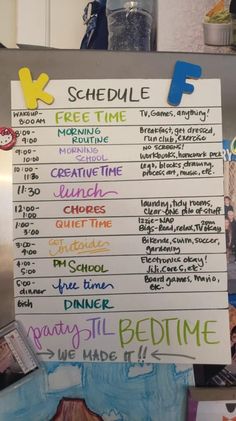 K F
SCHEDULE
WAKEUP- 8:00AM FREE TIME TV, Games, anything!
8:00- 9:00 MORNING ROUTINE Breakfast, get dressed, run club, exercise
9:00- 10:00 MORNING SCHOOL NO SCREENS! Workbooks, handmark pack
10:00- 11:30 CREATIVE TIME Lego, blocks, drawing, process art, music, etc.
11:30 lunch
12:00- 1:00 CHORES laundry, tidy rooms, clear one pile of stuff
1:00- QUIET TIME Izzie-NAP Bigs-Read, relax, TV okay
3:00- 4:00 GET outside Bikeride, swim, soccer, gardening
4:00- 5:00 PM SCHOOL Electronics okay! Lili, Cores, etc.
5:00- dinner free time Board games, Mario, etc.
6ish DINNER
party TIL BEDTIME
WE MADE it!!